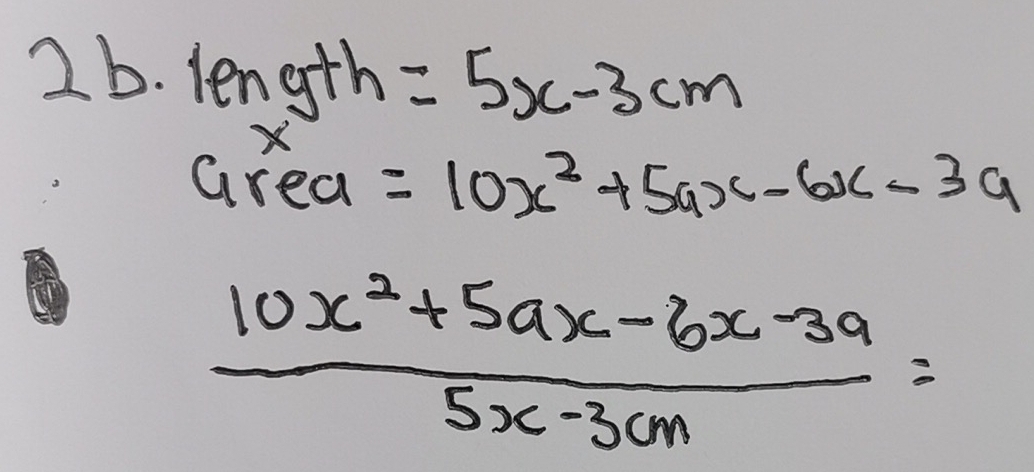 2b. length = 5x-3cm
x
area = 10x² + 5ax - 6x - 3a
10x² + 5ax - 6x - 3a
=
5x - 3cm